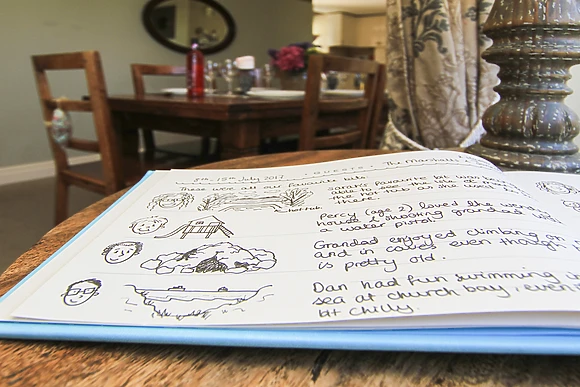 8th - 15th July 2017 The Marshalls
These were all our favourite bits
Sarah's favourite bit was
able to see the
as she
there.
hot tub
Percy (age 2) loved the
house & shooting grandad
a water pistol.
Grandad enjoyed climbing on
and in caves even though
is pretty old.
Dan had fun swimming
sea at church bay, even
bit chilly.